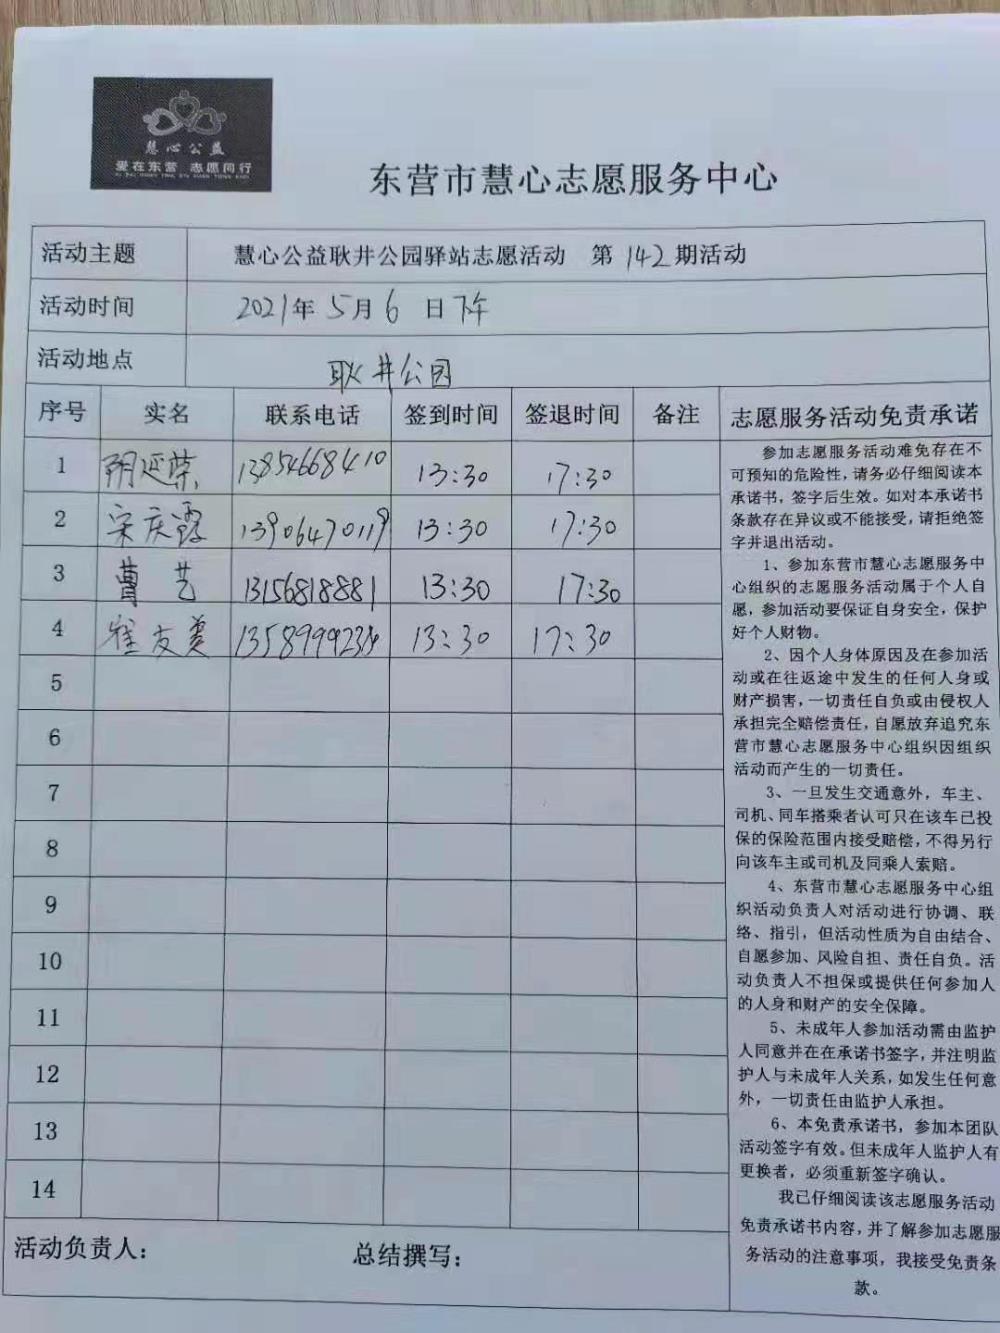 慧心公益
爱在东营 志愿同行
东营市慧心志愿服务中心
活动主题 慧心公益耿井公园驿站志愿活动 第142期活动
活动时间 2021年5月6日下午
活动地点 耿井公园
序号 实名 联系电话 签到时间 签退时间 备注
1 阴延荣 13854668410 13:30 17:30
2 宋庆霞 13906470119 13:30 17:30
3 曹艺 13156818881 13:30 17:30
4 程友美 13:30 17:30
5
6
7
8
9
10
11
12
13
14
活动负责人： 总结撰写：
志愿服务活动免责承诺
参加志愿服务活动难免存在不
可预知的危险性，请务必仔细阅读本
承诺书，签字后生效。如对本承诺书
条款存在异议或不能接受，请拒绝签
字并退出活动。
1、参加东营市慧心志愿服务中
心组织的志愿服务活动属于个人自
愿，参加活动要保证自身安全，保护
好个人财物。
2、因个人身体原因及在参加活
动或在往返途中发生的任何人身或
财产损害，一切责任自负或由侵权人
承担完全赔偿责任，自愿放弃追究东
营市慧心志愿服务中心组织因组织
活动而产生的一切责任。
3、一旦发生交通意外，车主、
司机、同车搭乘者认可只在该车已投
保的保险范围内接受赔偿，不得另行
向该车主或司机及同乘人索赔。
4、东营市慧心志愿服务中心组
织活动负责人对活动进行协调、联
络、指引，但活动性质为自由结合、
自愿参加、风险自担、责任自负。活
动负责人不担保或提供任何参加人
的人身和财产的安全保障。
5、未成年人参加活动需由监护
人同意并在在承诺书签字，并注明监
护人与未成年人关系，如发生任何意
外，一切责任由监护人承担。
6、本免责承诺书，参加本团队
活动签字有效。但未成年人监护人有
更换者，必须重新签字确认。
我已仔细阅读该志愿服务活动
免责承诺书内容，并了解参加志愿服
务活动的注意事项，我接受免责条
款。